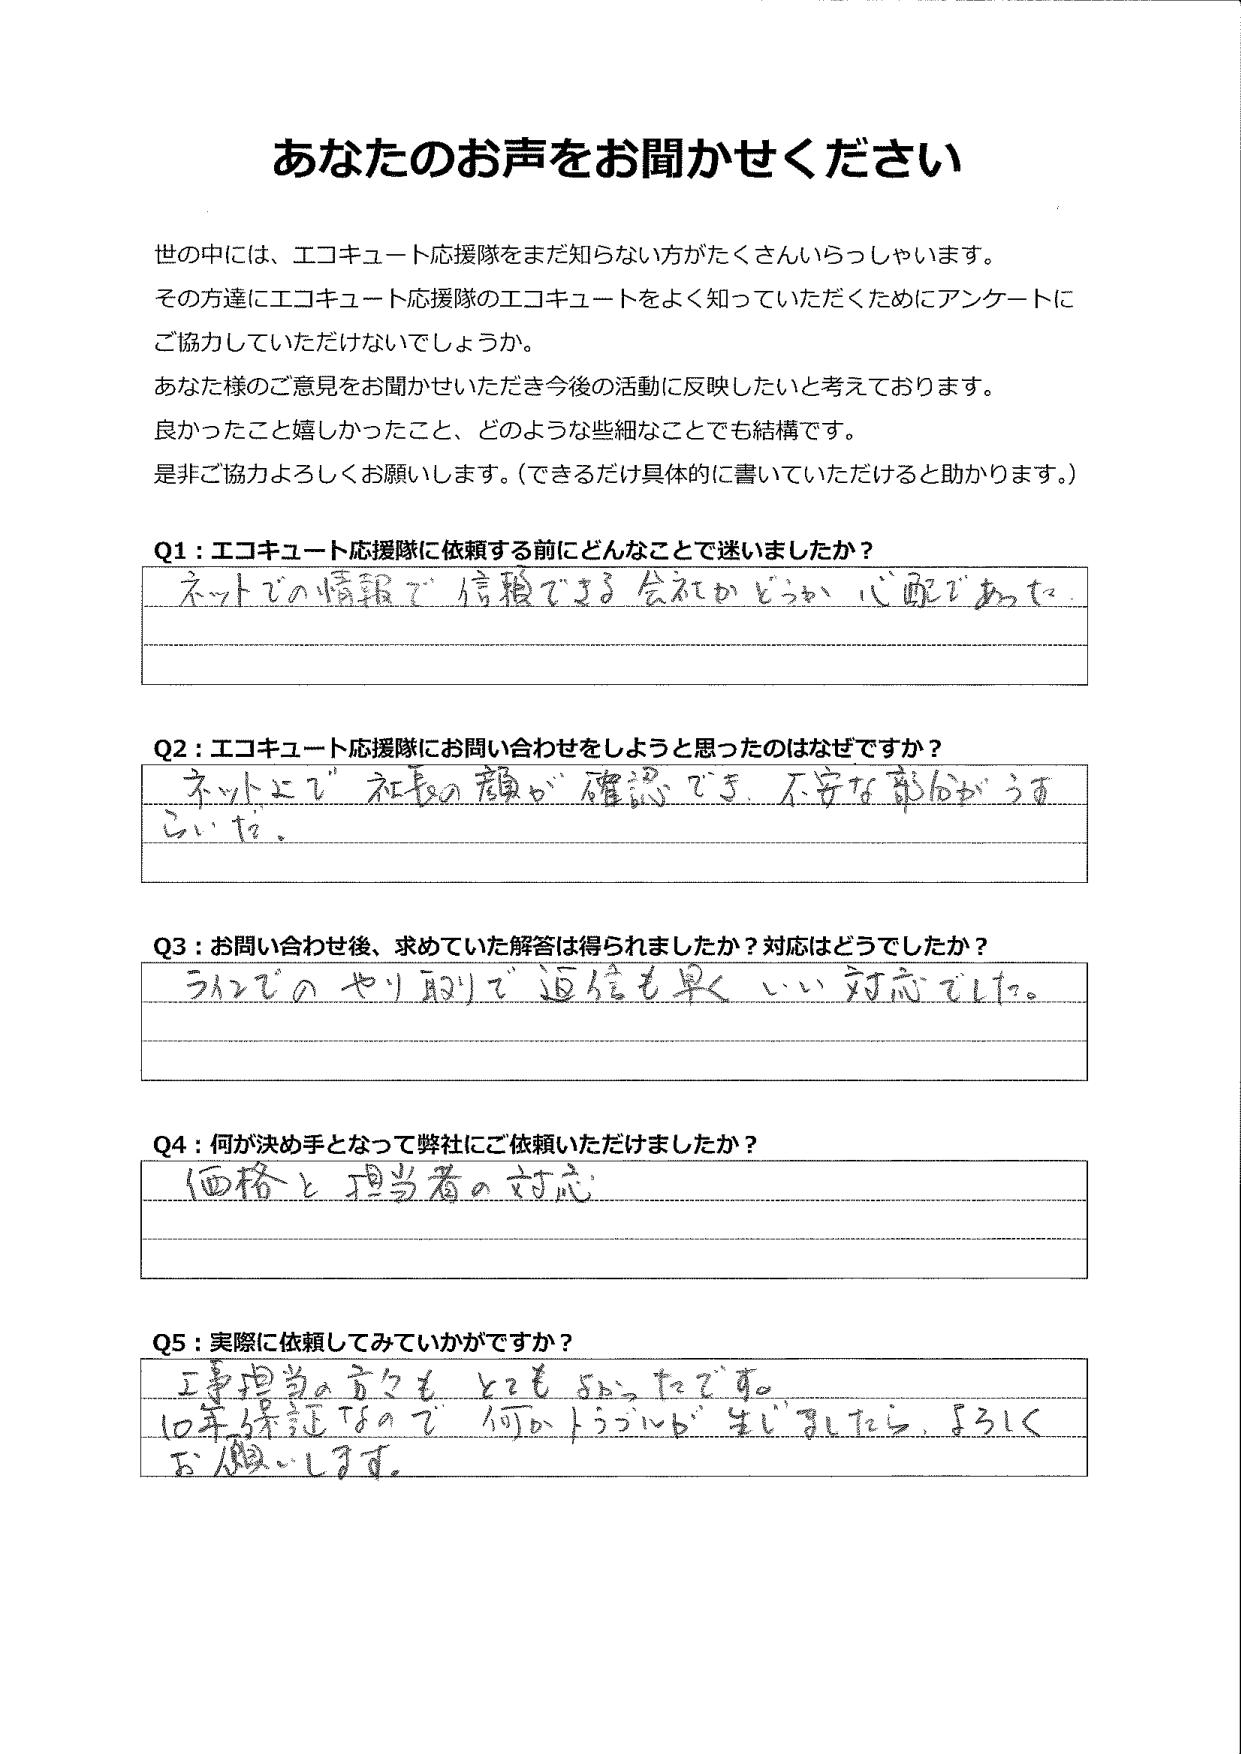 あなたのお声をお聞かせください
世の中には、エコキュート応援隊をまだ知らない方がたくさんいらっしゃいます。
その方達にエコキュート応援隊のエコキュートをよく知っていただくためにアンケートに
ご協力していただけないでしょうか。
あなた様のご意見をお聞かせいただき今後の活動に反映したいと考えております。
良かったこと嬉しかったこと、どのような些細なことでも結構です。
是非ご協力よろしくお願いします。（できるだけ具体的に書いていただけると助かります。）
Q1：エコキュート応援隊に依頼する前にどんなことで迷いましたか？
ネットでの情報で信頼できる会社かどうか心配であった.
Q2：エコキュート応援隊にお問い合わせをしようと思ったのはなぜですか？
ネット上で社長の顔が確認でき、不安な部分がうす
らいだ。
Q3：お問い合わせ後、求めていた解答は得られましたか？対応はどうでしたか？
ラインでのやり取りで返信も早くいい対応でした。
Q4：何が決め手となって弊社にご依頼いただけましたか？
価格と担当者の対応
Q5：実際に依頼してみていかがですか？
工事担当の方々もとてもよかったです。
10年保証なので何かトラブルが生じましたら、よろしく
お願いします。